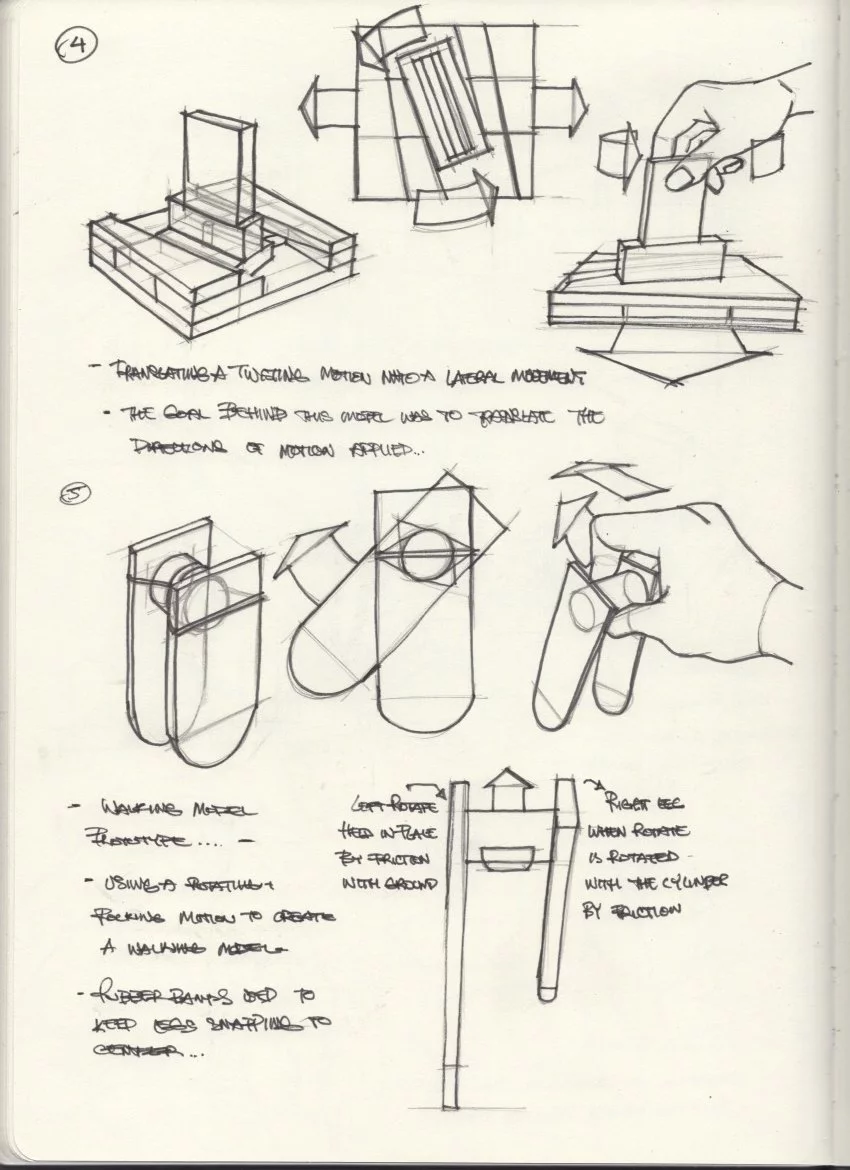 4
- TRANSLATING A TWISTING MOTION INTO A LATERAL MOVEMENT
- THE GOAL BEHIND THIS MODEL WAS TO TRANSLATE THE
DIRECTIONS OF MOTION APPLIED...
5
- WALKING MODEL
PROTOTYPE .... -
- USING A ROTATING +
ROCKING MOTION TO CREATE
A WALKING MODEL -
- RUBBER BANDS USED TO
KEEP LEGS SNAPPING TO
CENTER ...
LEFT ROTATE
HELD IN PLACE
BY FRICTION
WITH GROUND
RIGHT LEG
WHEN ROTATE
IS ROTATED
WITH THE CYLINDER
BY FRICTION